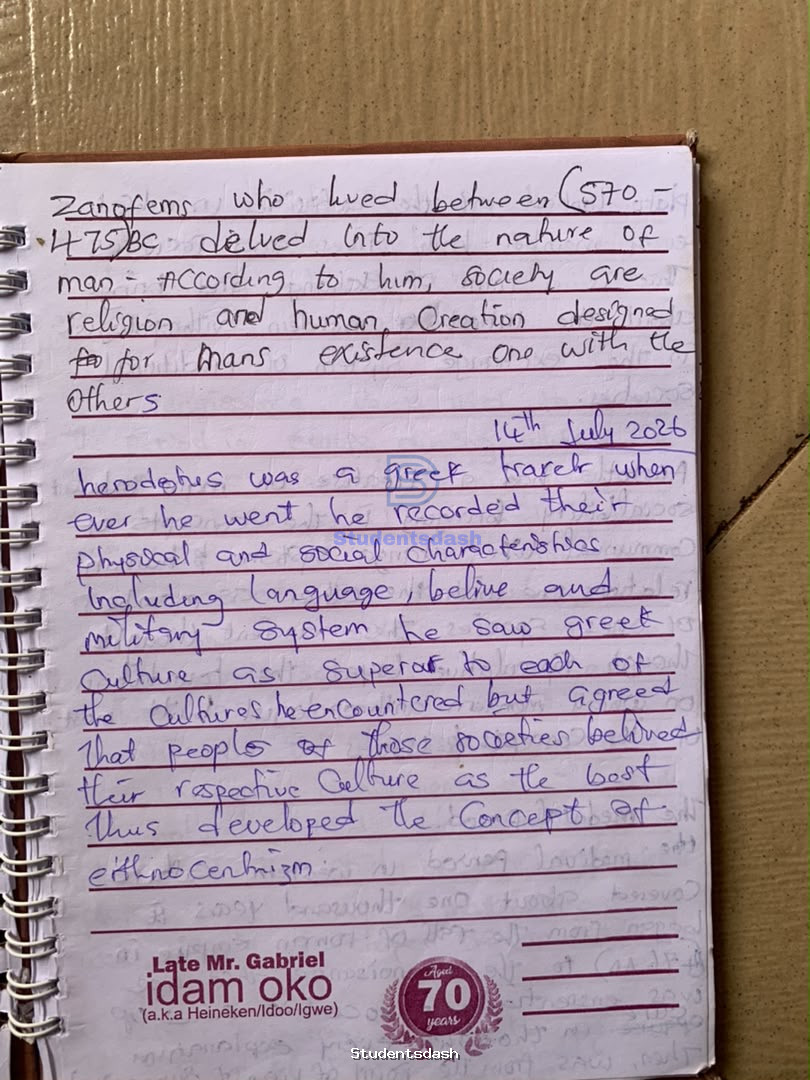 Zanofems who lived between (570 -
475)BC delved into the nature of
man - According to him, society are
religion and human Creation designed
for mans existence one with the
Others
14th July 2026
herodotus was a greek travelr when
ever he went he recorded their
physical and social Characteristics
Including language, belive and
military system he saw greek
Culture as superar to each of
the Cultures he encountered but agreed
that people of those societies belived
their respective Culture as the best
thus developed the Concept of
eithnocentrizm
Late Mr. Gabriel
idam oko
(a.k.a Heineken/Idoo/Igwe)
Aged
70
years
Studentsdash
Studentsdash